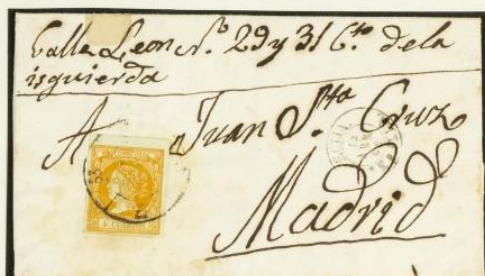 Calle Leon Nº. 29 y 31 Cto. dela
izquierda
A Juan Sta. Cruz
Madrid
4 CUARTOS